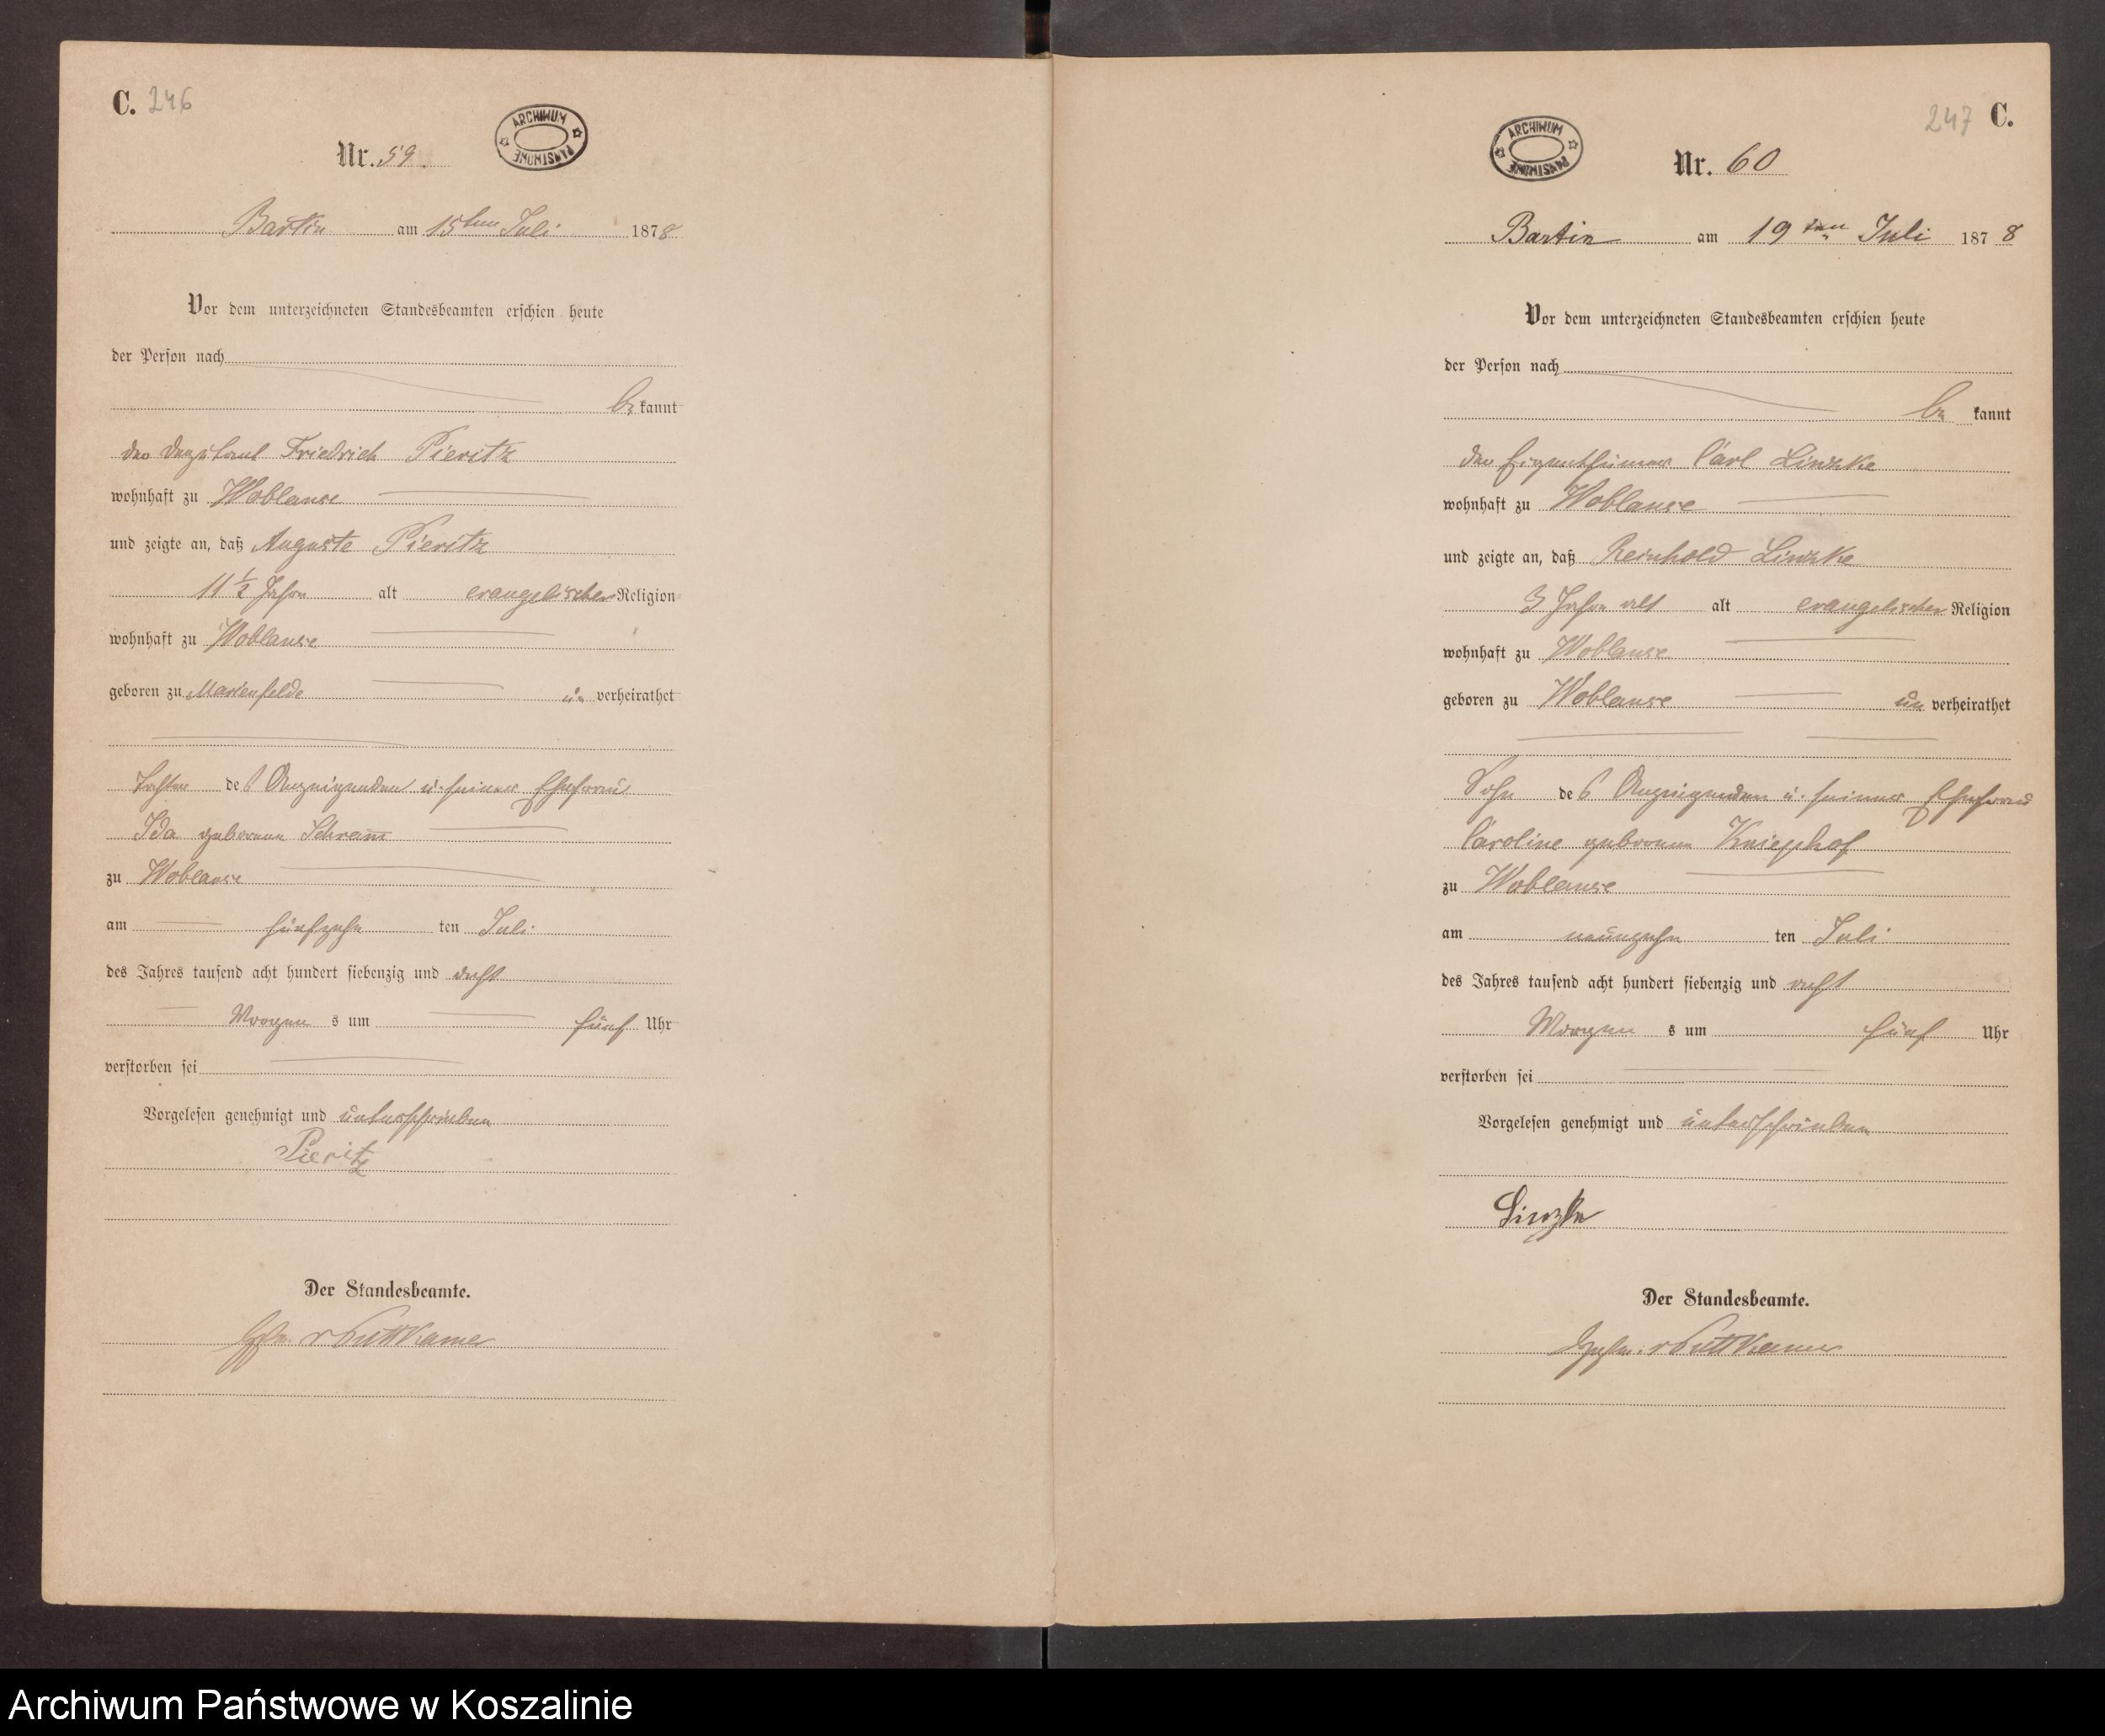 C. 246
ARCHIWUM PAŃSTWOWE
Nr. 59.
Bartin am 15ten Juli 1878
Vor dem unterzeichneten Standesbeamten erschien heute
der Person nach
bekannt
der Friedrich Pieritz
wohnhaft zu Woblanse
und zeigte an, daß Auguste Pieritz
11 1/2 Jahre alt evangelischer Religion
wohnhaft zu Woblanse
geboren zu Marienfelde unverheirathet
Tochter des Anzeigenden u. seiner Ehefrau
Ida geborene Schramm
zu Woblanse
am fünfzehn ten Juli
des Jahres tausend acht hundert siebenzig und acht
Morgen s um fünf Uhr
verstorben sei
Vorgelesen genehmigt und unterschrieben
Pieritz
Der Standesbeamte.
v Puttkamer
247 C.
ARCHIWUM PAŃSTWOWE
Nr. 60
Bartin am 19ten Juli 1878
Vor dem unterzeichneten Standesbeamten erschien heute
der Person nach
be kannt
der Eigenthümer Carl Linzke
wohnhaft zu Woblanse
und zeigte an, daß Reinhold Linzke
3 Jahre alt alt evangelischer Religion
wohnhaft zu Woblanse
geboren zu Woblanse un verheirathet
Sohn des Anzeigenden u. seiner Ehefrau
Caroline geborenen Kniephof
zu Woblanse
am neunzehn ten Juli
des Jahres tausend acht hundert siebenzig und acht
Morgen s um fünf Uhr
verstorben sei
Vorgelesen genehmigt und unterschrieben
Linzke
Der Standesbeamte.
v Puttkamer
Archiwum Państwowe w Koszalinie